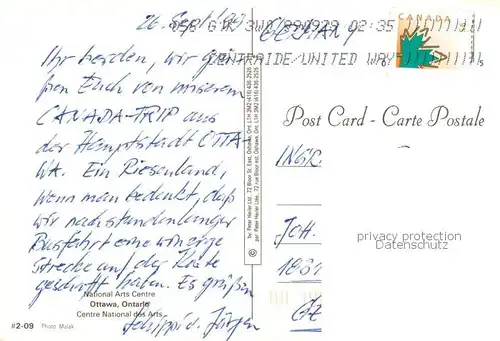 26. Sept.
GERMANY
K3W 990929 02:35
CENTRAIDE/UNITED WAY
CANADA
Ihr beiden, wir grü-
ßen Euch von unserem
CANADA-TRIP aus
der Hauptstadt OTTA-
WA. Ein Riesenland,
wenn man bedenkt, daß
wir nach stundenlanger
Busfahrt eine winzige
Strecke auf der Karte
geschafft haben. Es grüßen
Jürgen
National Arts Centre
Ottawa, Ontario
Centre National des Arts
#2-09 Photo Malak
© by Peter Heiler Ltd., 72 Bloor St. East, Oshawa, Ont. L1H 3M2 (416) 436-2526
par Peter Heiler Ltée., 72 rue Bloor est, Oshawa, Ont. L1H 3M2 (416) 436-2526
Post Card - Carte Postale
Joh.
privacy protection
Datenschutz